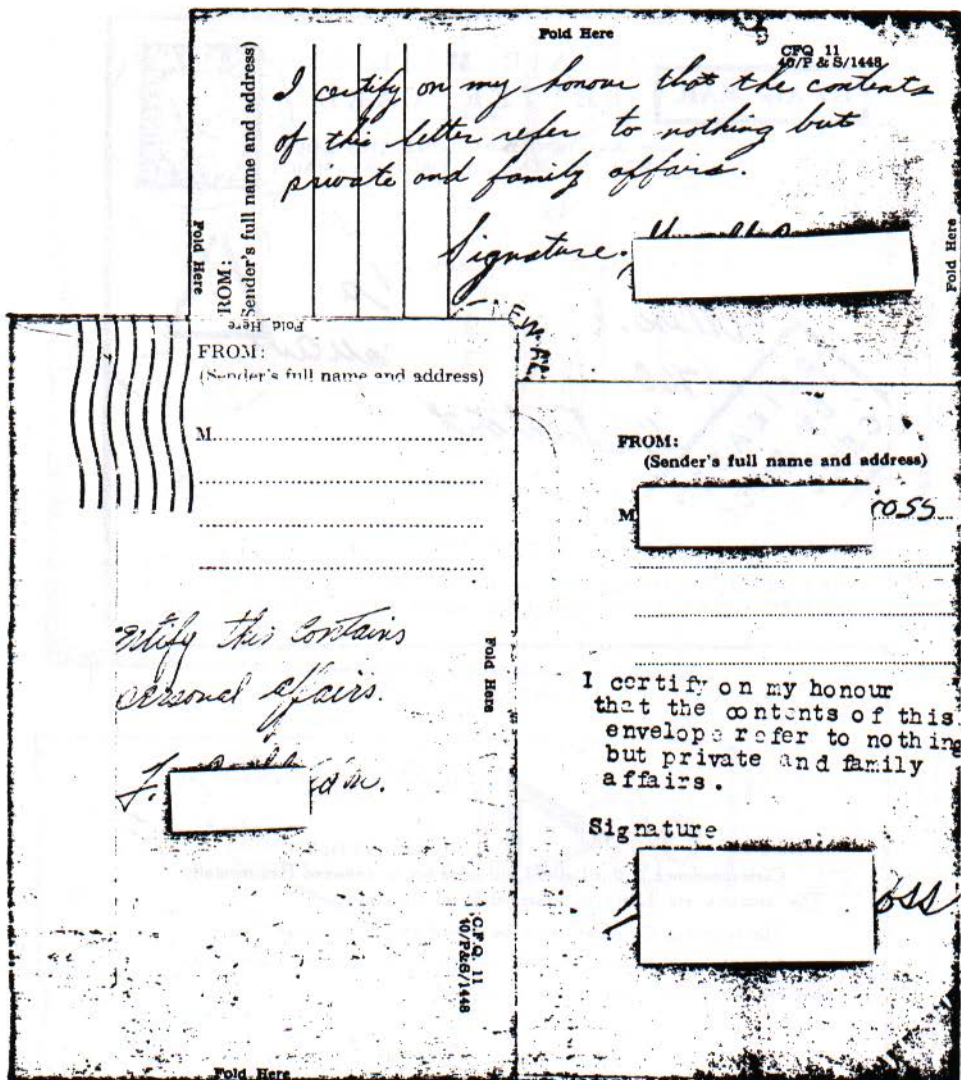 Fold Here
CFQ 11
40/P & S/1448
I certify on my honour that the contents
of this letter refer to nothing but
private and family affairs.
Signature.
ROM:
(Sender's full name and address)
Fold Here
Fold Here
Fold Here
NEW
FROM:
(Sender's full name and address)
M
ertify this contains
personal affairs.
F.
Fold Here
C.F.Q. 11
40/P&S/1448
Fold Here
FROM:
(Sender's full name and address)
M ross
I certify on my honour
that the contents of this
envelope refer to nothing
but private and family
affairs.
Signature
oss